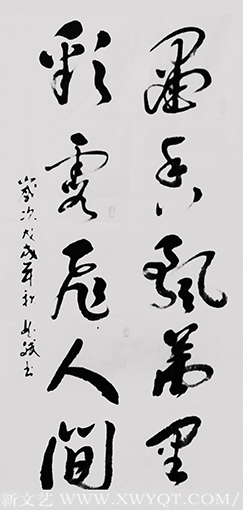 墨香飘万里
彩云飞人间
岁次戊戌年秋
书
新文艺 WWW.XWYQT.COM/